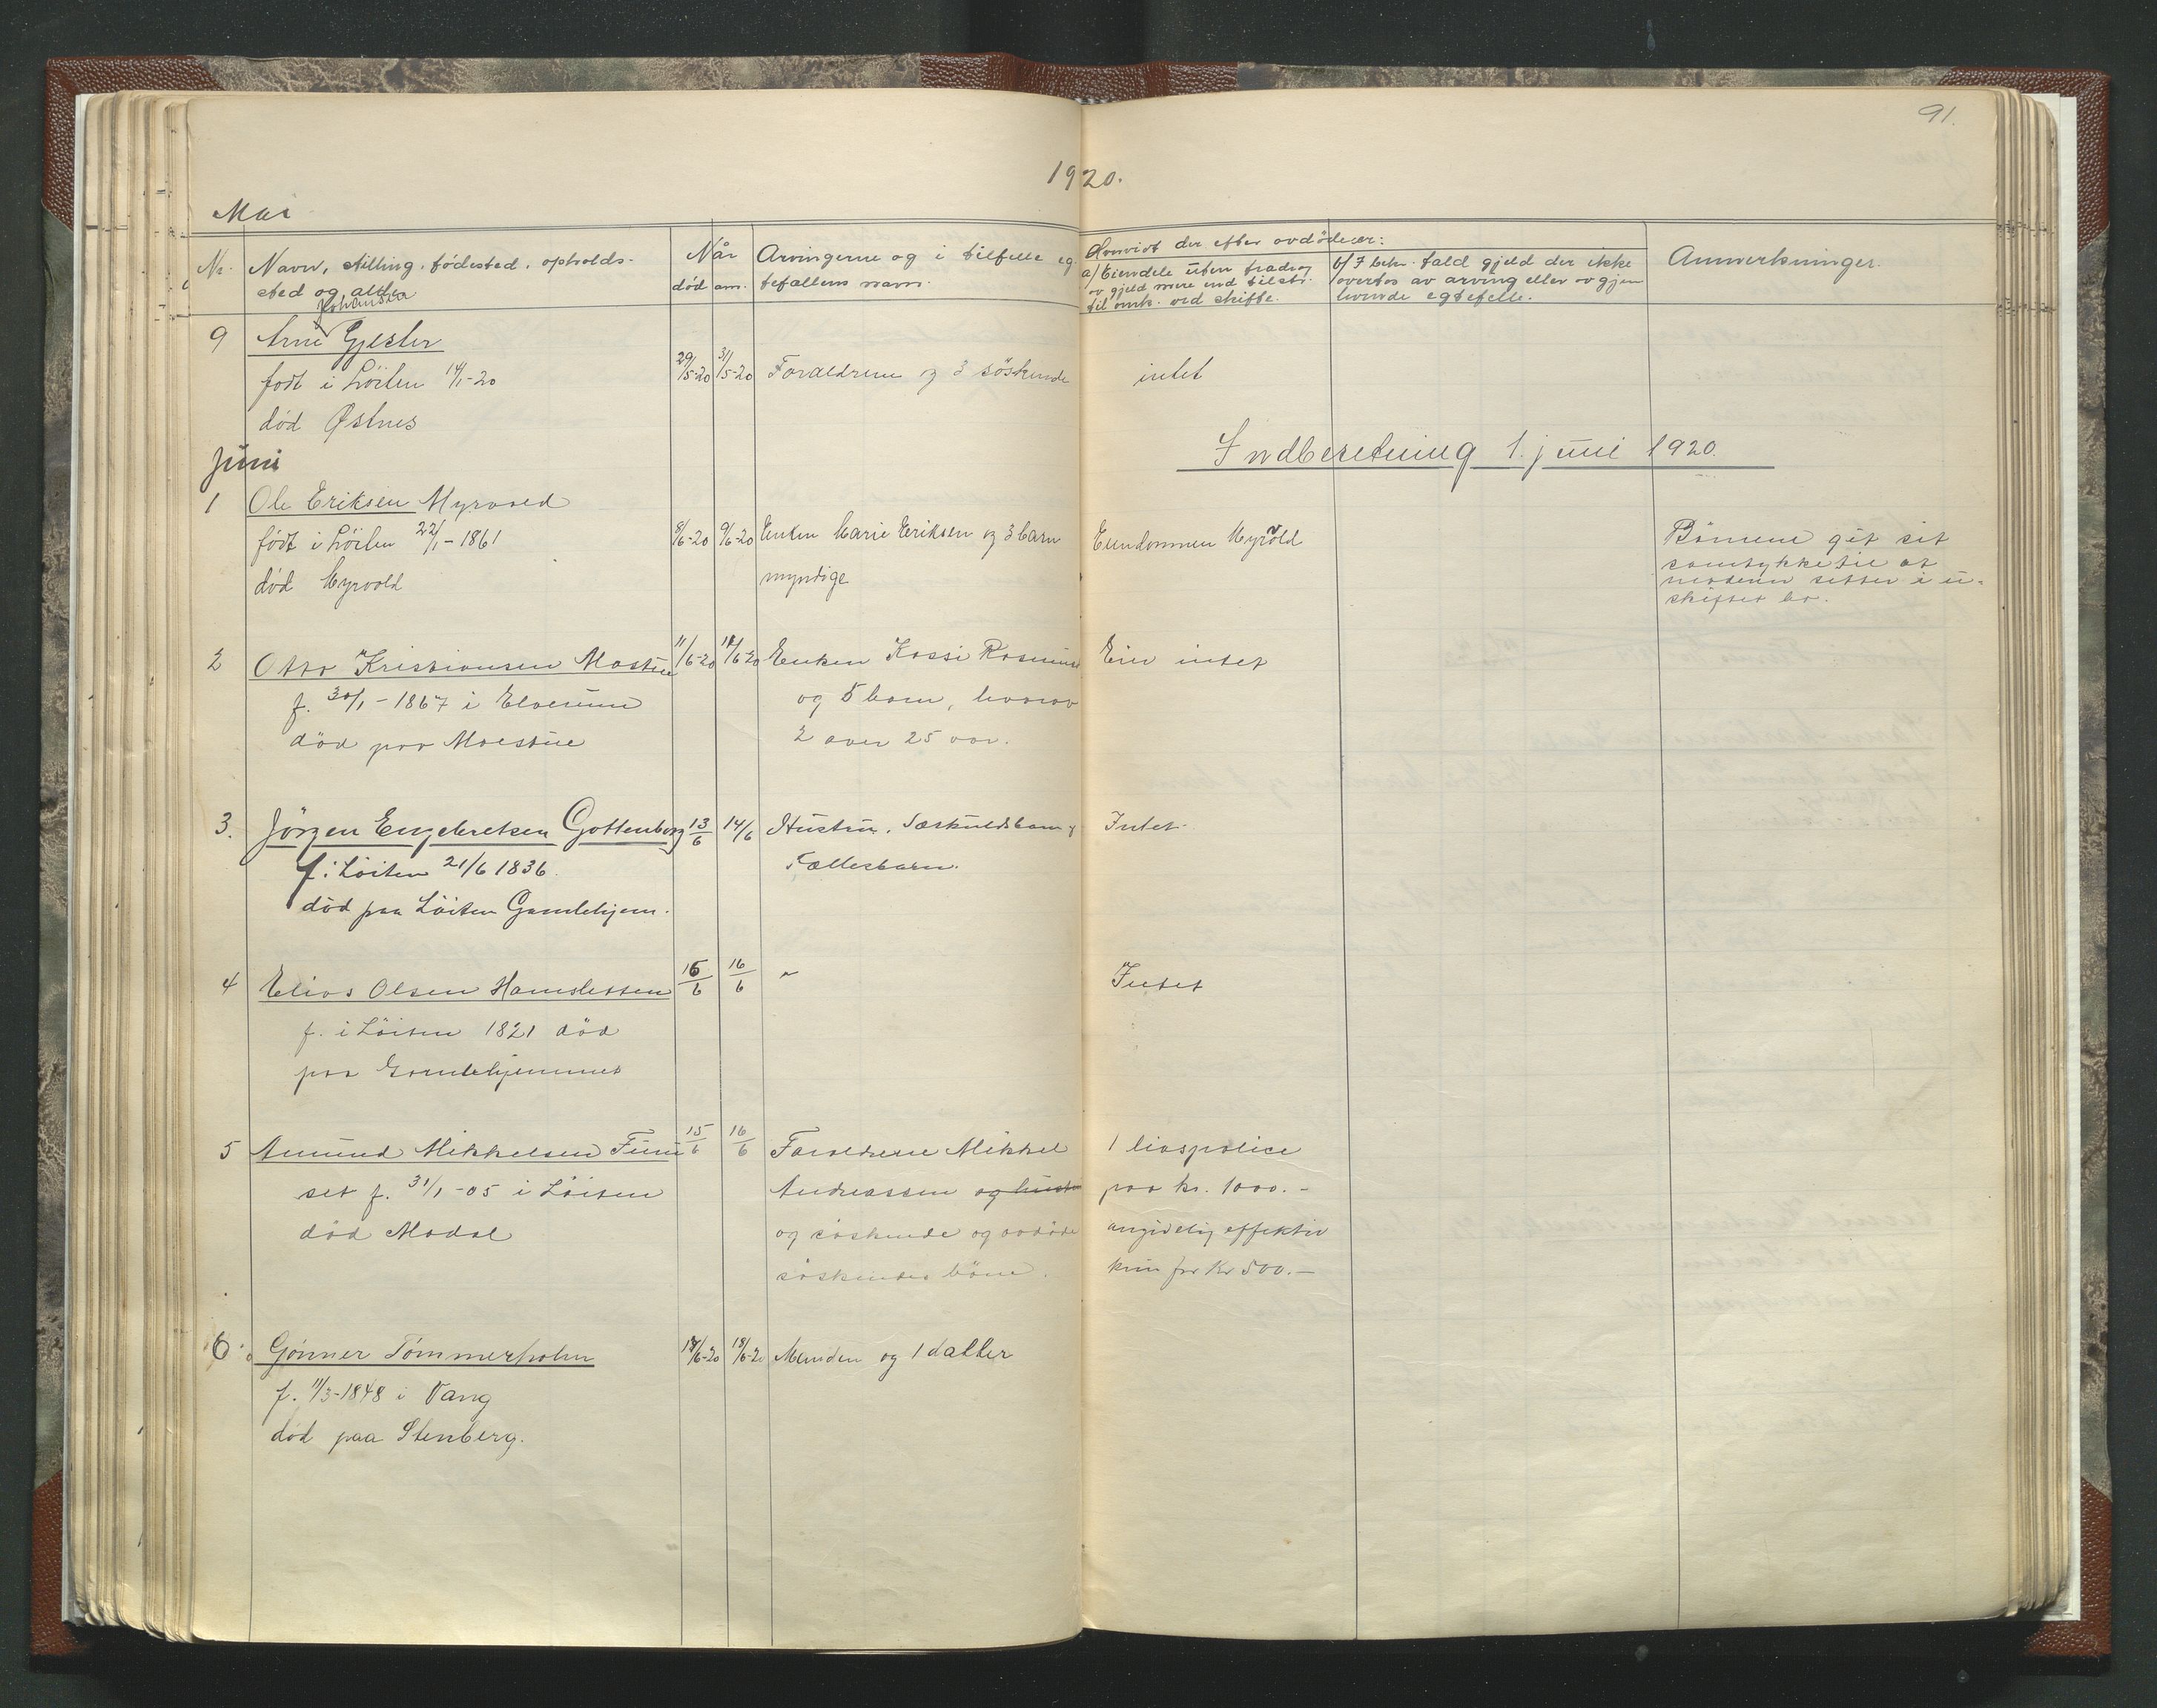 91.
1920.
Mai
Nr. Navn, stilling, fødested, opholds-
sted og alder
Når
død anm.
Arvingerne og i tilfelle eg-
tefellens navn.
Hvorvidt der efter avdöde er:
a/ Eiendele uten fradrag
av gjeld mere end tilstr.
til omk. ved skifte.
b/ I beh. fald gjeld der ikke
overtas av arving eller av gjen
levende egtefelle.
Anmerkninger.
Johansen
9 Arne Gjesler
født i Löiten 14/1-20
død Østnes
29/5-20 31/5-20 Foraeldrene og 3 söskende intet
Indberetning 1. juni 1920.
Juni
1 Ole Eriksen Myrvold
født i Löiten 22/1-1861
død Myrvold
8/6-20 9/6-20 Enken Marie Eriksen og 3 barn
myndige
Eiendommen Myrvold
Börnene git sit
samtykke til at
moderen sitter i u-
skiftet bo.
2 Otto Kristiansen Mostue
f. 30/1-1867 i Elverum
död paa Moestue
11/6-20 12/6-20 Enken Kassi
og 5 barn, hvorav
2 over 25 aar.
Eier intet
3. Jörgen Engebretsen Gottenborg
f. i Löiten 21/6 1836.
död paa Löiten Gamlehjem.
13/6 14/6 Hustru. Særkuldsbarn og
Fællesbarn.
Intet
4 Elias Olsen Hamsletten
f. i Löiten 1821 död
paa Gamlehjemmet
15/6 16/6 -
Intet
5 Amund Mikkelsen Furu
set f. 31/1-05 i Löiten
död Modal
15/6 16/6 Foraeldrene Mikkel
Andreassen og hustru
og söskende og avdöde
söskendes börn.
1 livspolice
paa kr. 1000.-
angivelig effektiv
kun for Kr 500.-
6. Gunner Tömmerholm
f. 11/3-1848 i Vang
död paa Stenberg.
18/6-20 19/6-20 Manden og 1 datter